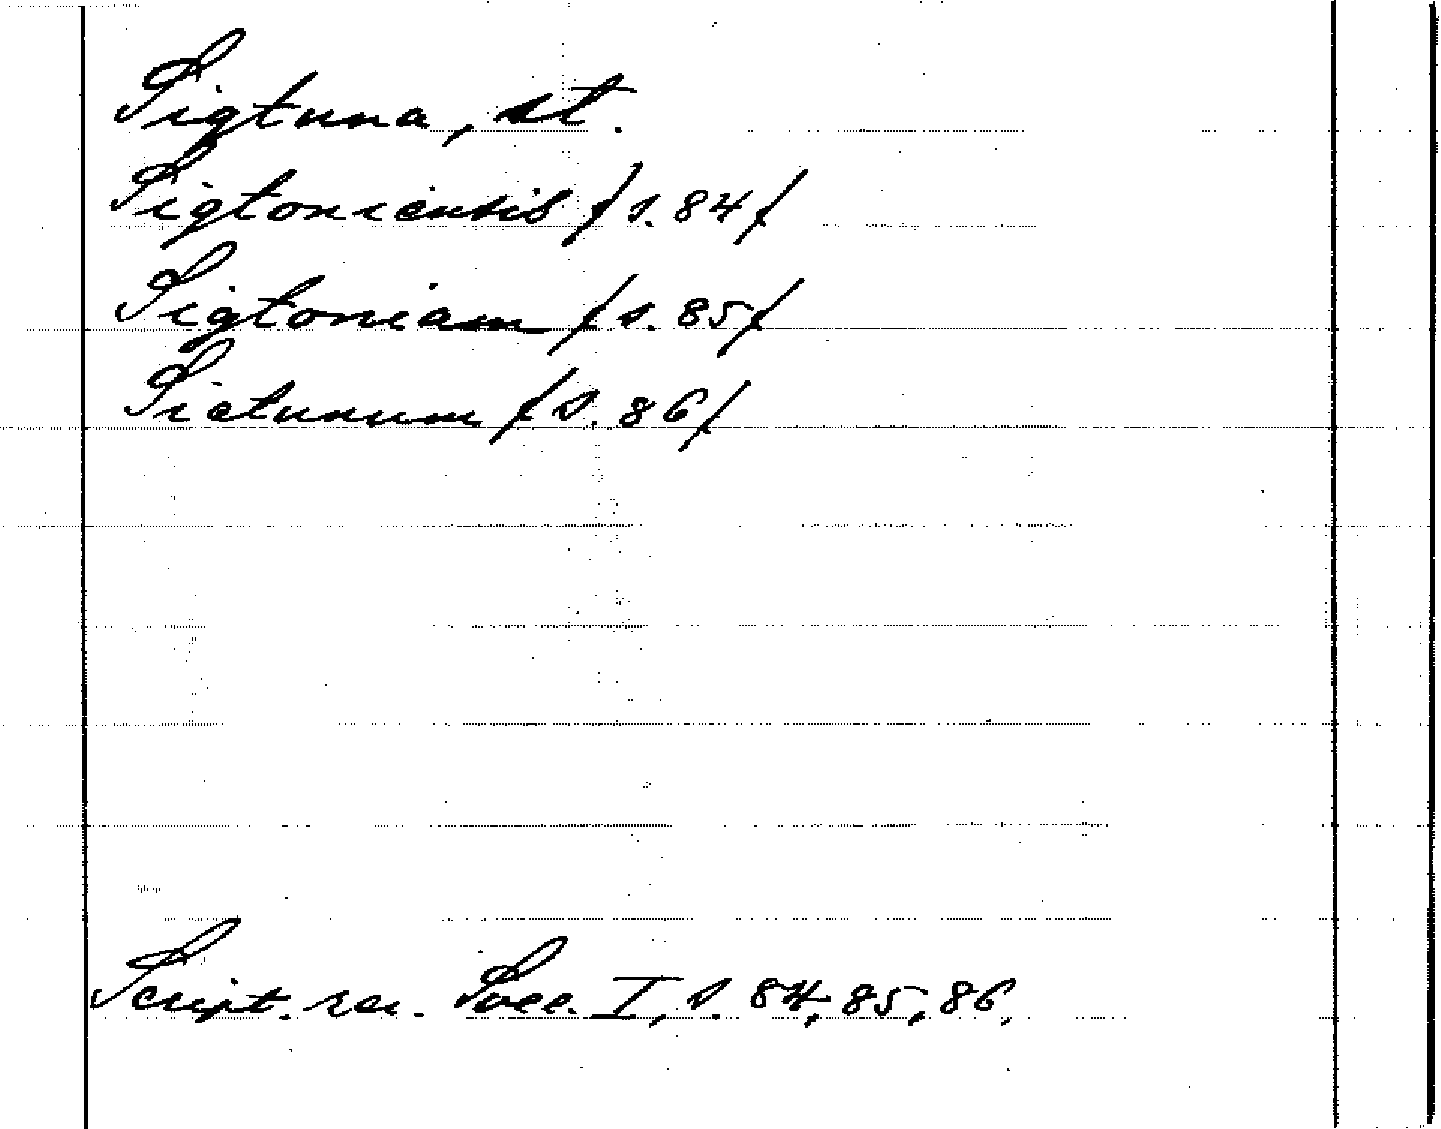 Sigtuna, st.
Sigtoniensis /s. 84/
Sigtoniam /s. 85/
Sictunum /s. 86/
Script. rer. Svec. I, s. 84, 85, 86.